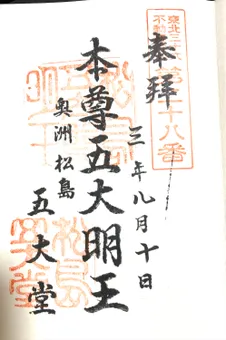 奉拝
東北三十六
不動尊霊場
第二十八番
三年八月十日
本尊五大明王
奥洲松島
五大堂